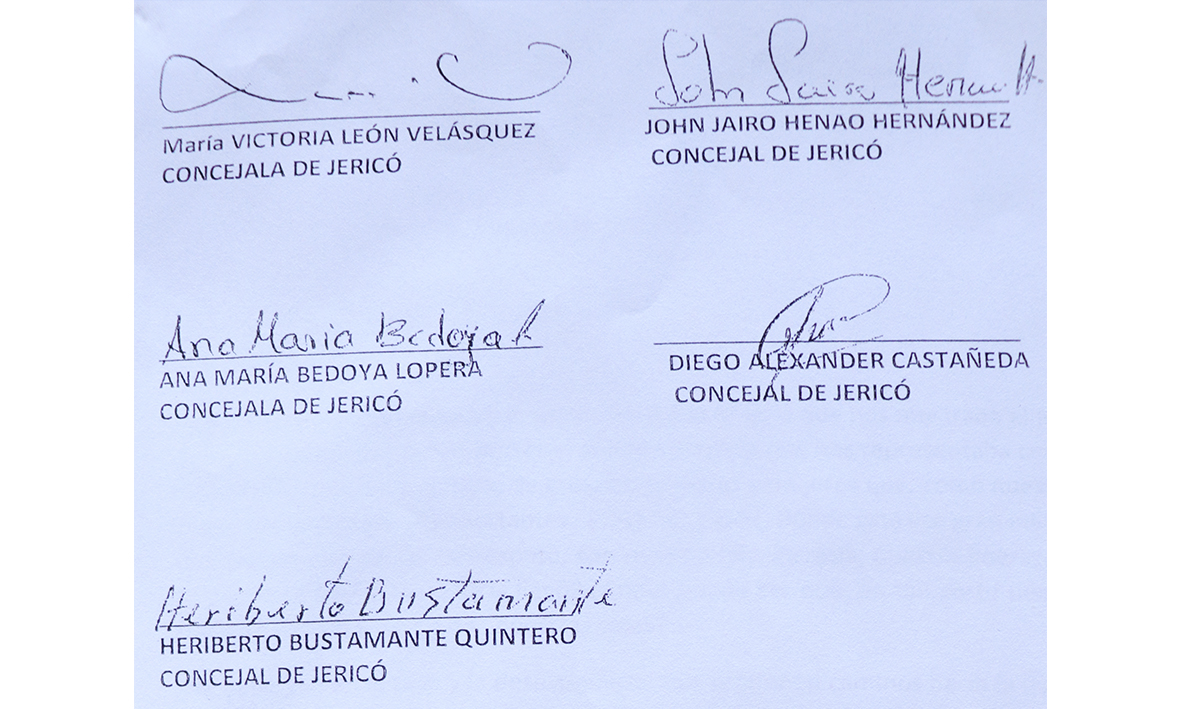 John Jairo
María VICTORIA LEÓN VELÁSQUEZ
CONCEJALA DE JERICÓ
JOHN JAIRO HENAO HERNÁNDEZ
CONCEJAL DE JERICÓ
Ana Maria Bedoya L
ANA MARÍA BEDOYA LOPERA
CONCEJALA DE JERICÓ
DIEGO ALEXANDER CASTAÑEDA
CONCEJAL DE JERICÓ
Heriberto Bustamante
HERIBERTO BUSTAMANTE QUINTERO
CONCEJAL DE JERICÓ